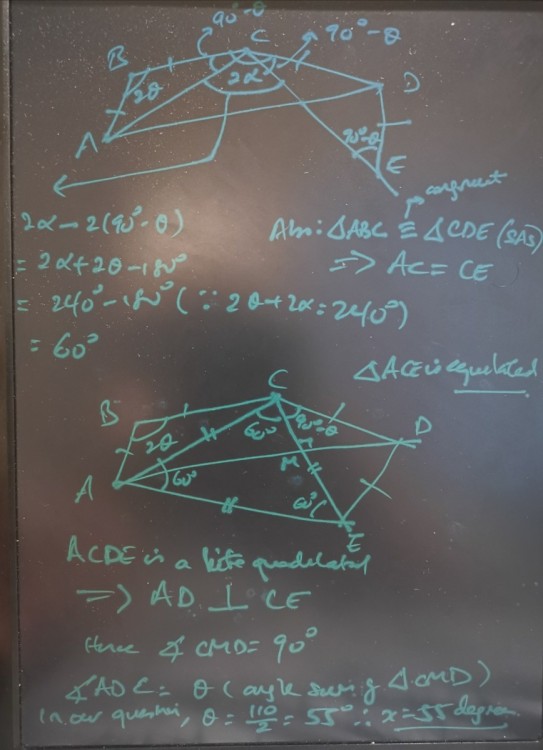 90°-θ
C
90°-θ
B
2θ
2α
D
A
90°-θ
E
congruent
2α-2(90°-θ)
= 2α+2θ-180°
= 240°-180° (∵ 2θ+2α=240°)
= 60°
Also: △ABC ≡ △CDE (SAS)
⇒ AC = CE
△ACE is equilateral
C
B
2θ
60°
90°-θ
D
M
A
60°
60°
E
ACDE is a kite quadrilateral
⇒ AD ⊥ CE
Hence ∡ CMD = 90°
∡ADC = θ (angle sum of △CMD)
In our question, θ = 110/2 = 55° ∴ x = 55 degrees